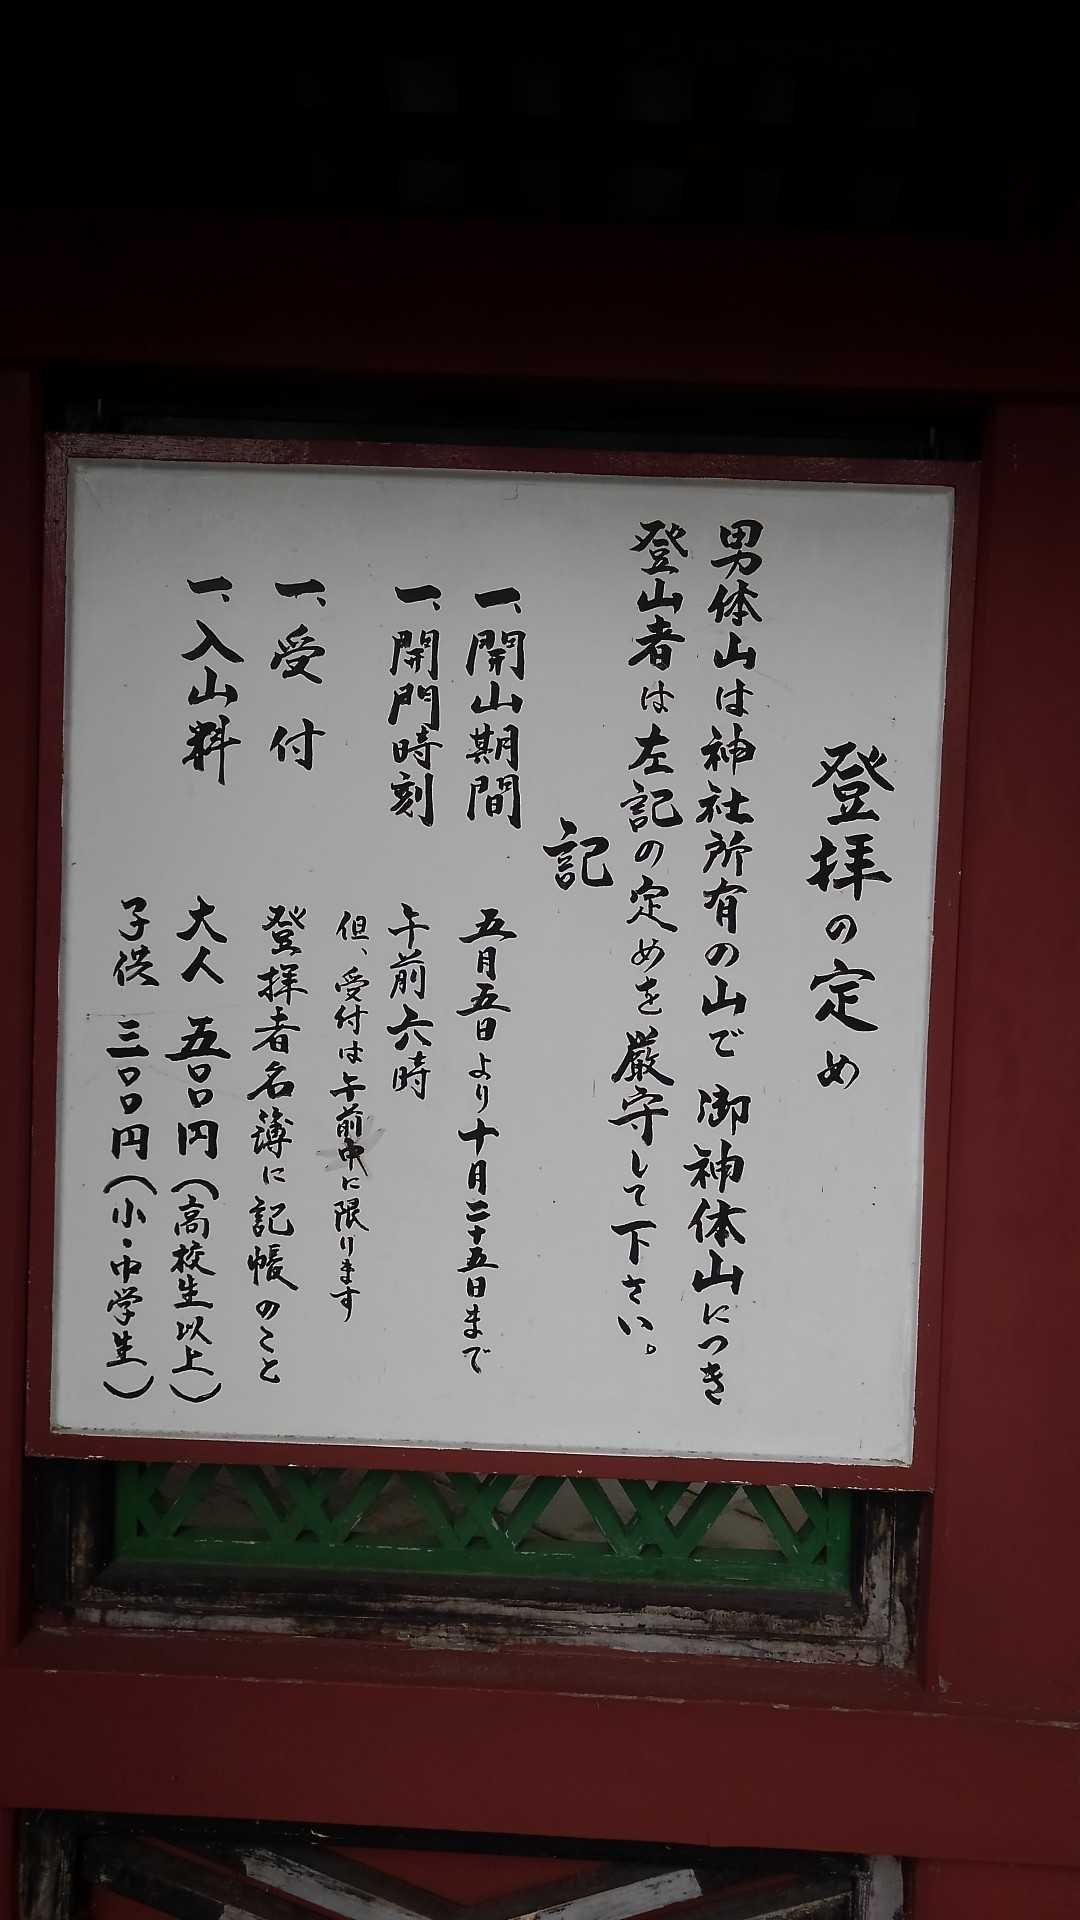 登拝の定め
男体山は神社所有の山で御神体山につき
登山者は左記の定めを厳守して下さい。
記
一、開山期間　五月五日より十月二十五日まで
一、開門時刻　午前六時
但、受付は午前中に限ります
一、受付　登拝者名簿に記帳のこと
一、入山料　大人　五〇〇円（高校生以上）
子供　三〇〇円（小・中学生）